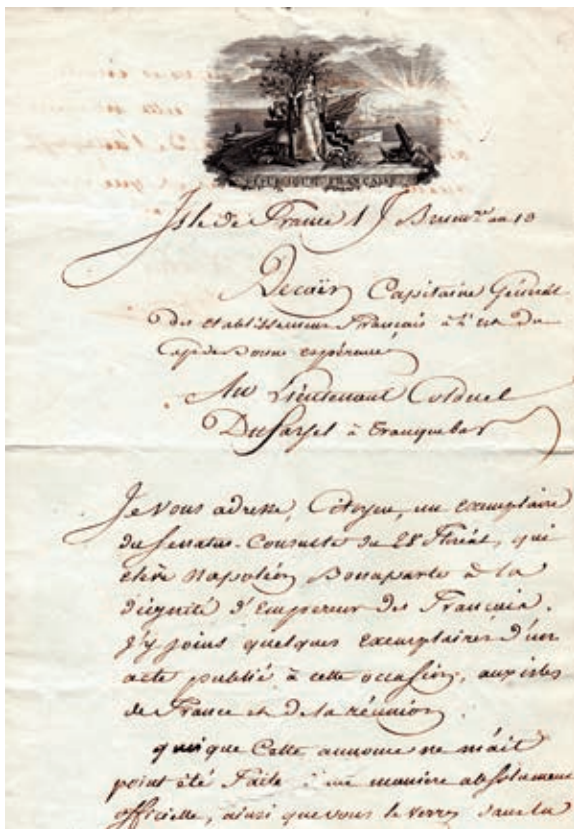 RÉPUBLIQUE FRANÇAISE
Isle de France Brum.re an 13
Decaën Capitaine Général
des établissemens français à l'est du
Cap de Bonne espérance
Au Lieutenant Colonel
à Tranquebar
Je vous adresse, Citoyen, un exemplaire
du Senatus-Consulte du 28 floréal, qui
élève Napoléon Bonaparte à la
dignité d'Empereur des Français.
J'y joins quelques exemplaires d'un
acte publié à cette occasion, aux isles
de France et de la réunion
quoique cette annonce ne m'ait
point été faite d'une manière absolument
officielle, ainsi que vous le verrez dans la